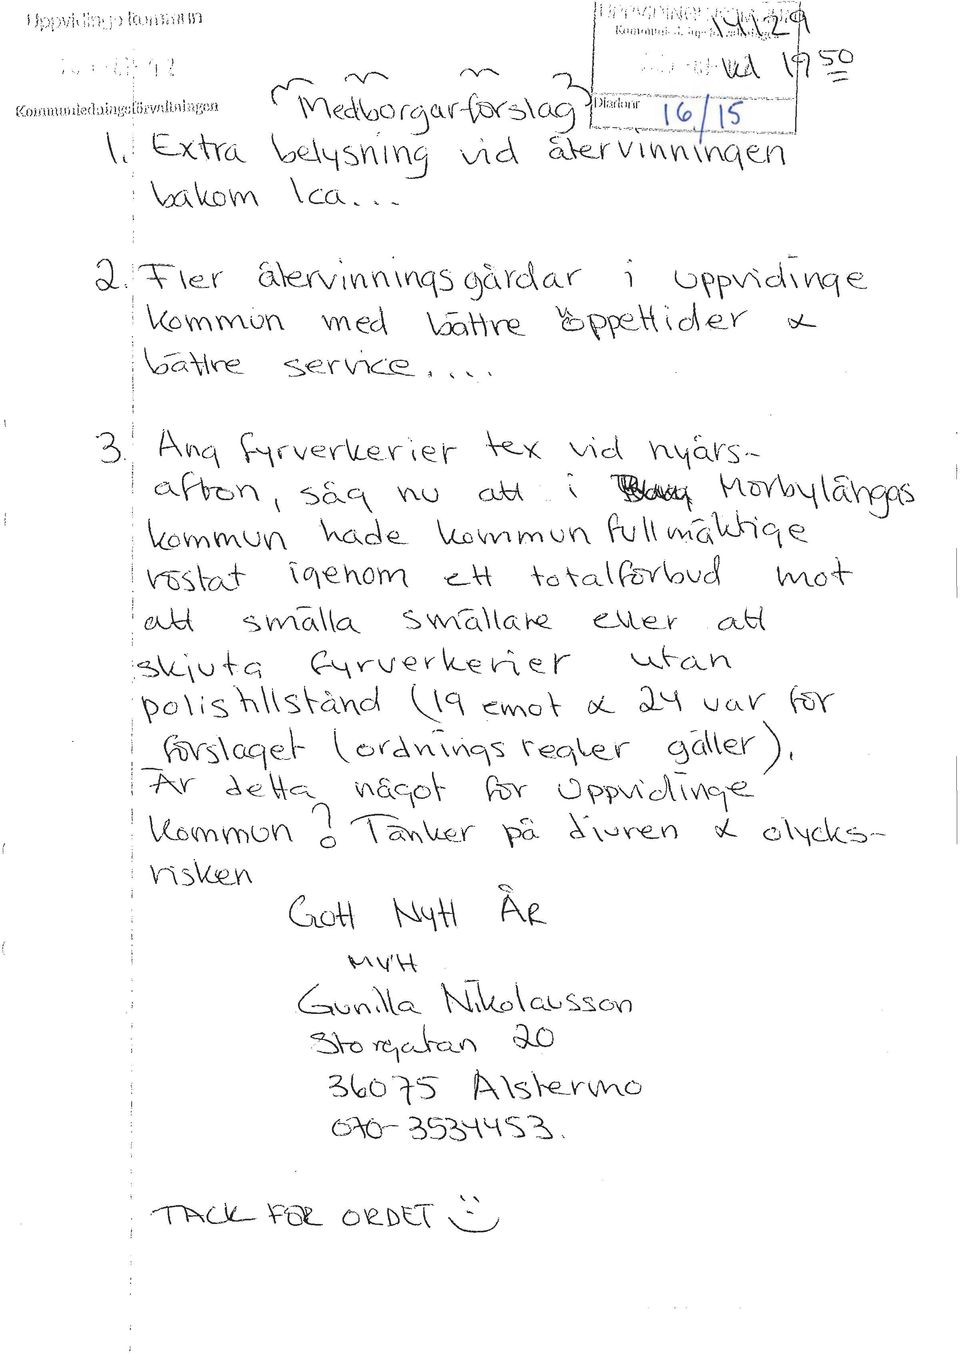 Uppvidinge kommun
14/12 29
kl 19 50
Kommunledningsförvaltningen
Medborgarförslag
Diarienr 16/15
1. Extra belysning vid återvinningen
bakom Ica...
2. Fler återvinningsgårdar i uppvidinge
kommun med bättre öppettider &
bättre service....
3. Ang fyrverkerier tex vid nyårs-
afton, såg nu att i Mörbylångas
kommun hade kommunfullmäktige
röstat igenom ett totalförbud mot
att smälla smällare eller att
skjuta fyrverkerier utan
polistillstånd (19 emot & 24 var för
förslaget (ordningsregler gäller).
Är detta något för Uppvidinge
kommun? Tänker på djuren & olycks-
risken
Gott Nytt ÅR
MVH
Gunilla Nikolausson
Storgatan 20
36075 Alstermo
070-3534453.
TACK FÖR ORDET